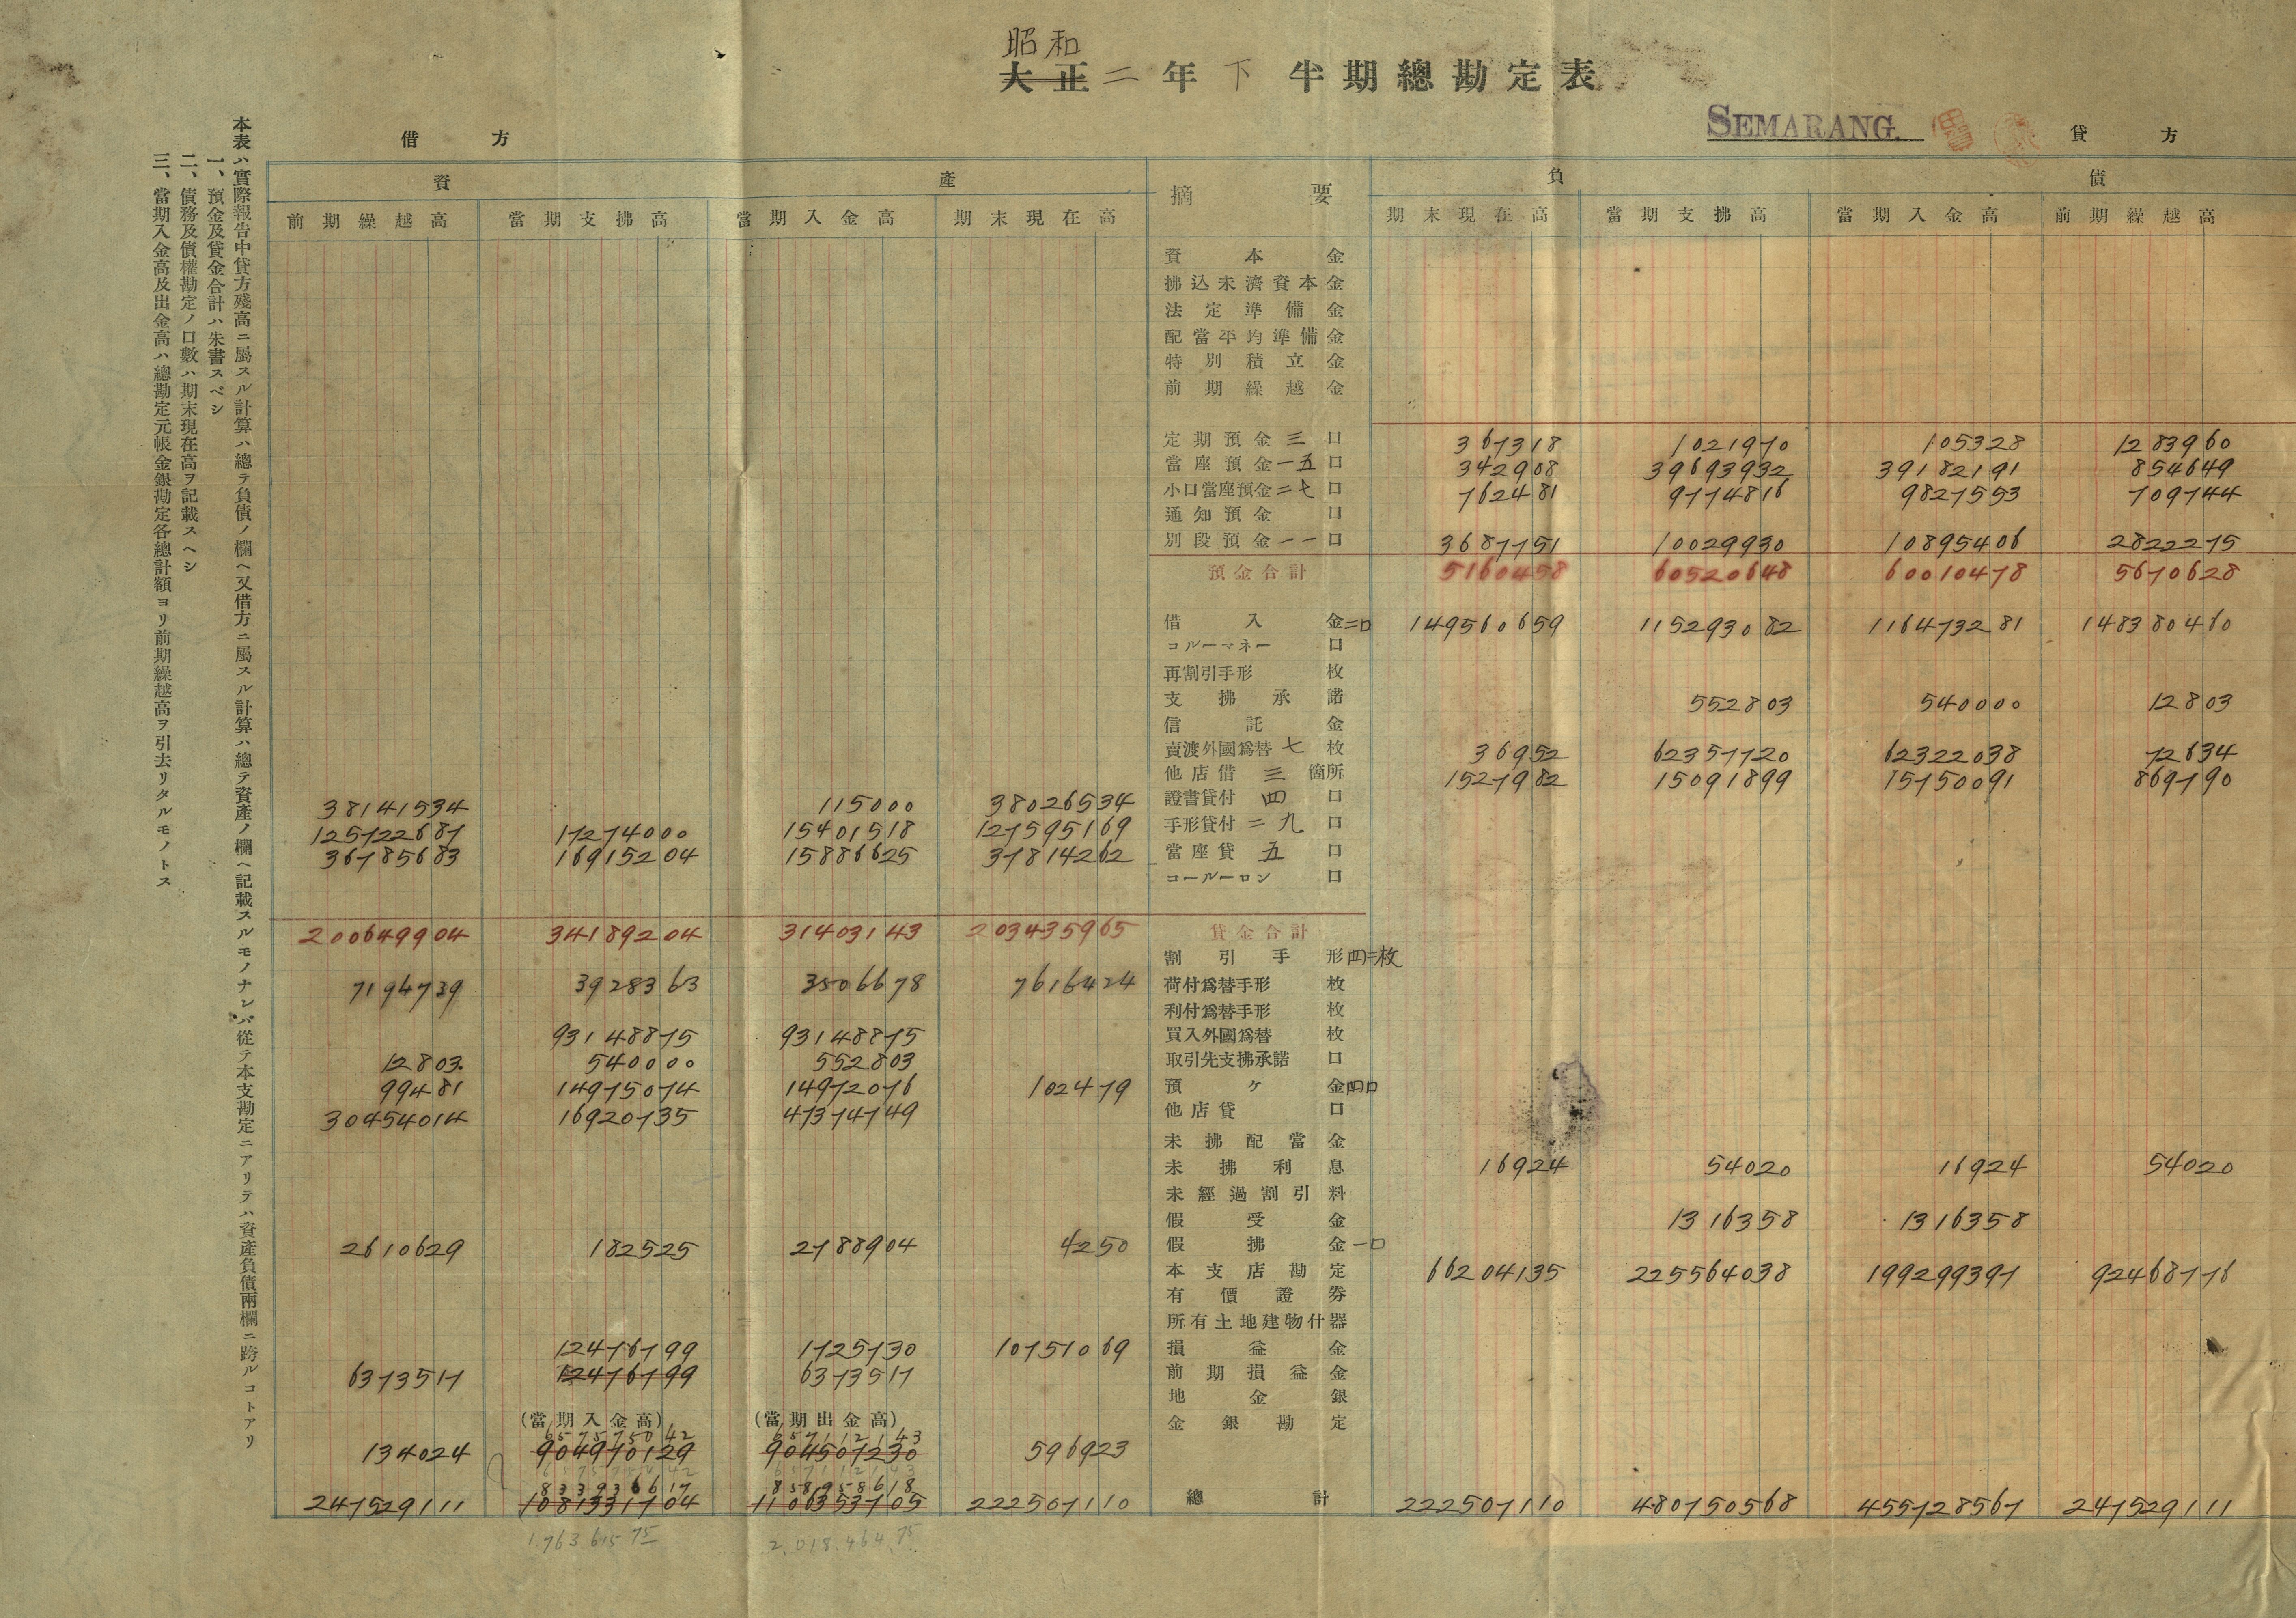 昭和
大正二年下半期總勘定表
SEMARANG.
借方
貸方
資產
摘要
負債
前期繰越高 當期支拂高 當期入金高 期末現在高 期末現在高 當期支拂高 當期入金高 前期繰越高
資本金
拂込未濟資本金
法定準備金
配當平均準備金
特別積立金
前期繰越金
定期預金三口 367318 1021970 105328 1283960
當座預金一五口 342908 39693932 39182191 854649
小口當座預金二七口 762481 9774816 9827553 709744
通知預金口
別段預金一一口 3687751 10029930 10895406 2822275
預金合計 5160458 60520648 60010478 5670628
借入金二口 149560659 115293082 116473281 148380460
コルーマネー口
再割引手形枚
支拂承諾 552803 540000 12803
信託金
賣渡外國爲替七枚 36952 62357720 62322038 72634
他店借三箇所 1527982 15091899 15750091 869790
38141534 115000 38026534 證書貸付四口
125722687 17274000 15401518 127595169 手形貸付二九口
36785683 16915204 15886625 37814262 當座貸五口
コールーロン口
200649904 34189204 31403143 203435965 貸金合計
割引手形四二枚
7194739 3928363 3506678 7616424 荷付爲替手形枚
利付爲替手形枚
93148875 93148875 買入外國爲替枚
12803 540000 552803 取引先支拂承諾口
99481 14975074 14972076 102479 預ケ金四口
30454014 16920735 47374749 他店貸口
未拂配當金
未拂利息 16924 54020 16924 54020
未經過割引料
假受金 1316358 1316358
2610629 182525 2788904 4250 假拂金一口
本支店勘定 66204135 225564038 199299397 92468776
有價證券
所有土地建物什器
12476799 1725730 10751069 損益金
6373517 12476799 6373517 前期損益金
地金銀
(當期入金高) (當期出金高) 金銀勘定
657575042 657112143
134024 904970129 904507230 596923
833936617 858958618
247529111 1081331704 1106353705 222507110 總計 222507110 480750568 455728567 247529111
1.763.615 75 2.018.464.75
本表ハ實際報告中貸方殘高ニ屬スル計算ハ總テ負債ノ欄ヘ又借方ニ屬スル計算ハ總テ資產ノ欄ヘ記載スルモノナレバ從テ本支勘定ニアリテハ資產負債兩欄ニ跨ルコトアリ
一、預金及貸金合計ハ朱書スベシ
二、債務及債權勘定ノ口數ハ期末現在高ヲ記載スヘシ
三、當期入金高及出金高ハ總勘定元帳金銀勘定各總計額ヨリ前期繰越高ヲ引去リタルモノトス